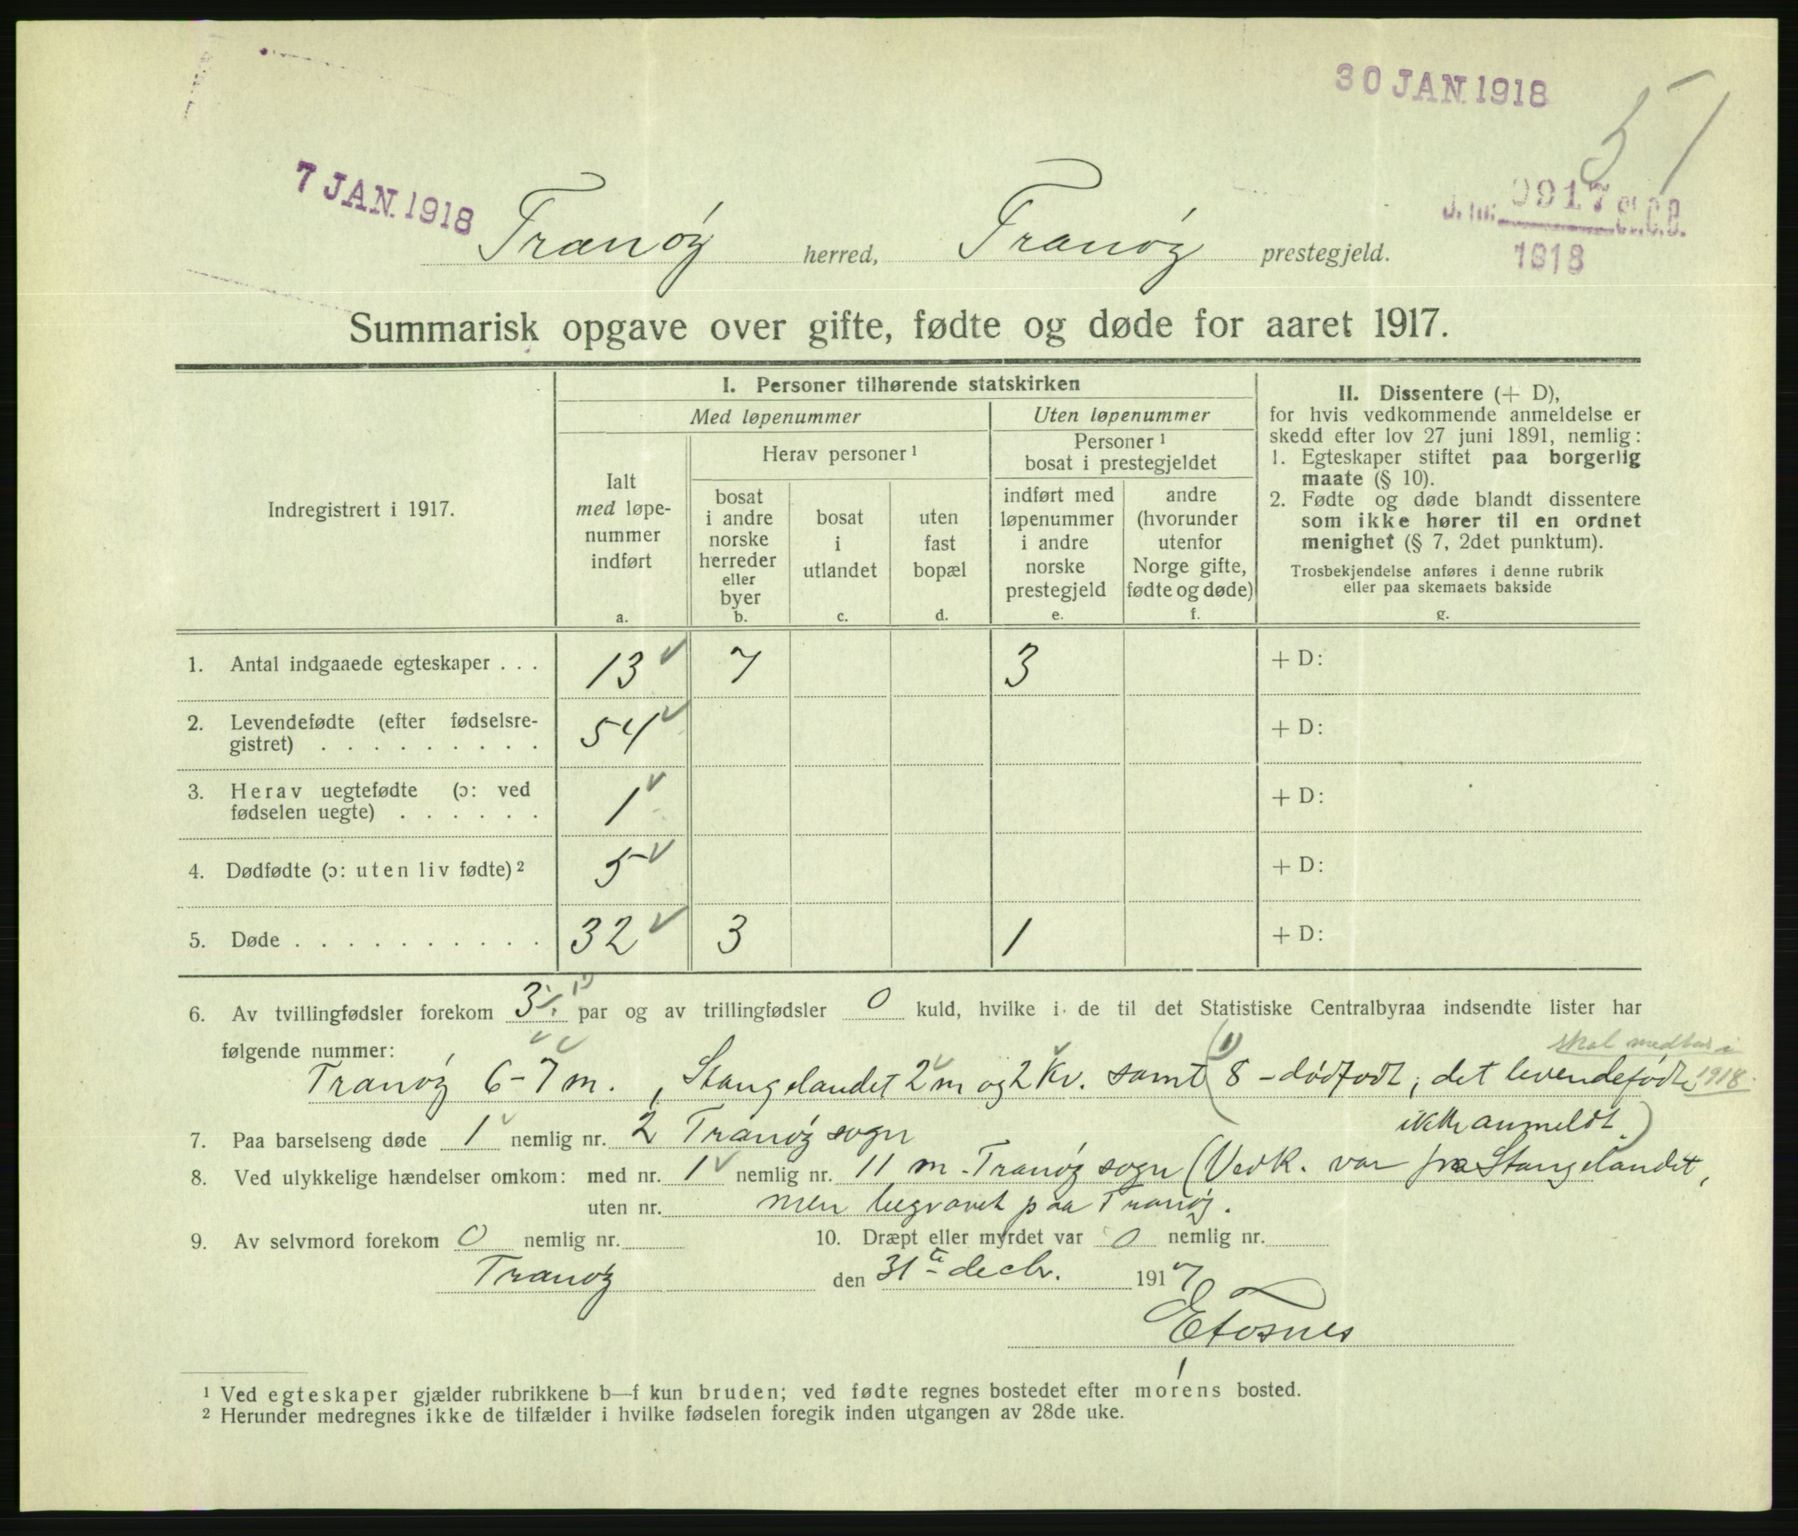 30 JAN. 1918
51
7 JAN. 1918
J. nr. 0917 St. C. B.
1918
Tranöy herred, Tranöy prestegjeld.
Summarisk opgave over gifte, fødte og døde for aaret 1917.
Indregistrert i 1917.
I. Personer tilhørende statskirken
Med løpenummer
Uten løpenummer
Ialt
med løpe-
nummer
indført
a.
Herav personer ¹
bosat
i andre
norske
herreder
eller
byer
b.
bosat
i
utlandet
c.
uten
fast
bopæl
d.
Personer ¹
bosat i prestegjeldet
indført med
løpenummer
i andre
norske
prestegjeld
e.
andre
(hvorunder
utenfor
Norge gifte,
fødte og døde)
f.
II. Dissentere (+ D),
for hvis vedkommende anmeldelse er
skedd efter lov 27 juni 1891, nemlig:
1. Egteskaper stiftet paa borgerlig
maate (§ 10).
2. Fødte og døde blandt dissentere
som ikke hører til en ordnet
menighet (§ 7, 2det punktum).
Trosbekjendelse anføres i denne rubrik
eller paa skemaets bakside
g.
1. Antal indgaaede egteskaper . . . 13 7 3 + D:
2. Levendefødte (efter fødselsre-
gistret) . . . . . . . . . 54 + D:
3. Herav uegtefødte (ɔ: ved
fødselen uegte) . . . . . . 1 + D:
4. Dødfødte (ɔ: uten liv fødte) ² 5 + D:
5. Døde . . . . . . . . . . 32 3 1 + D:
6. Av tvillingfødsler forekom 3 1) par og av trillingfødsler 0 kuld, hvilke i de til det Statistiske Centralbyraa indsendte lister har
følgende nummer:
skal medtas i
1918.
Tranöy 6-7 m., Stangelandet 2 m og 2 Kv. samt (1) 8 - dödfödt, det levendefödte
ikke anmeldt.)
7. Paa barselseng døde 1 nemlig nr. 2 Tranöy sogn
8. Ved ulykkelige hændelser omkom: med nr. 1 nemlig nr. 11 m - Tranöy sogn (Vedk. var fra Stangelandet,
uten nr. men begravet paa Tranöy.
9. Av selvmord forekom 0 nemlig nr. 10. Dræpt eller myrdet var 0 nemlig nr.
Tranöy den 31te decbr. 1917
E Fosnes
¹ Ved egteskaper gjælder rubrikkene b—f kun bruden; ved fødte regnes bostedet efter morens bosted.
² Herunder medregnes ikke de tilfælder i hvilke fødselen foregik inden utgangen av 28de uke.